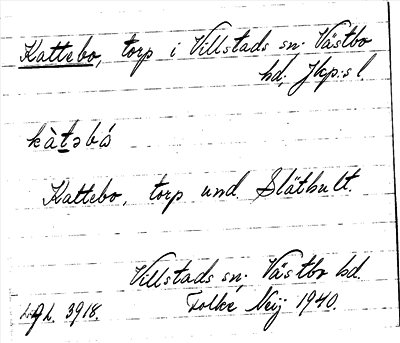 Kattebo, torp i Villstads sn. Västbo
hd; Jkp:s l.
kàtəbó
Kattebo, torp und. Slätbult.
Villstads sn; Västbo hd.
3918. Folke Neij 1940.